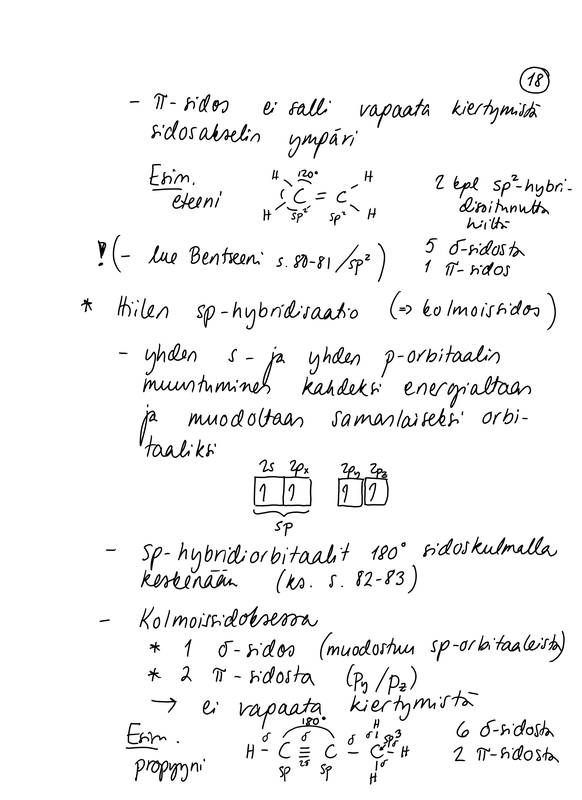 18
- π-sidos ei salli vapaata kiertymistä
sidosakselin ympäri
Esim.
eteeni
H 120° H
C = C
H sp² sp² H
2 kpl sp²-hybri-
disoitunutta
hiiltä
5 σ-sidosta
1 π-sidos
! (- lue Bentseeni s. 80-81 / sp²)
* Hiilen sp-hybridisaatio (⇒ kolmoissidos)
- yhden s- ja yhden p-orbitaalin
muuntuminen kahdeksi energialtaan
ja muodoltaan samanlaiseksi orbi-
taaliksi
2s 2px 2py 2pz
1 1 1 1
sp
- sp-hybridiorbitaalit 180° sidoskulmalla
keskenään (ks. s. 82-83)
- Kolmoissidoksessa
* 1 σ-sidos (muodostuu sp-orbitaaleista)
* 2 π-sidosta (py/pz)
→ ei vapaata kiertymistä
Esim.
propyyni
180° H
σ σ σ σ sp³
H - C ≡ C - C - H
sp sp σ
H
6 σ-sidosta
2 π-sidosta